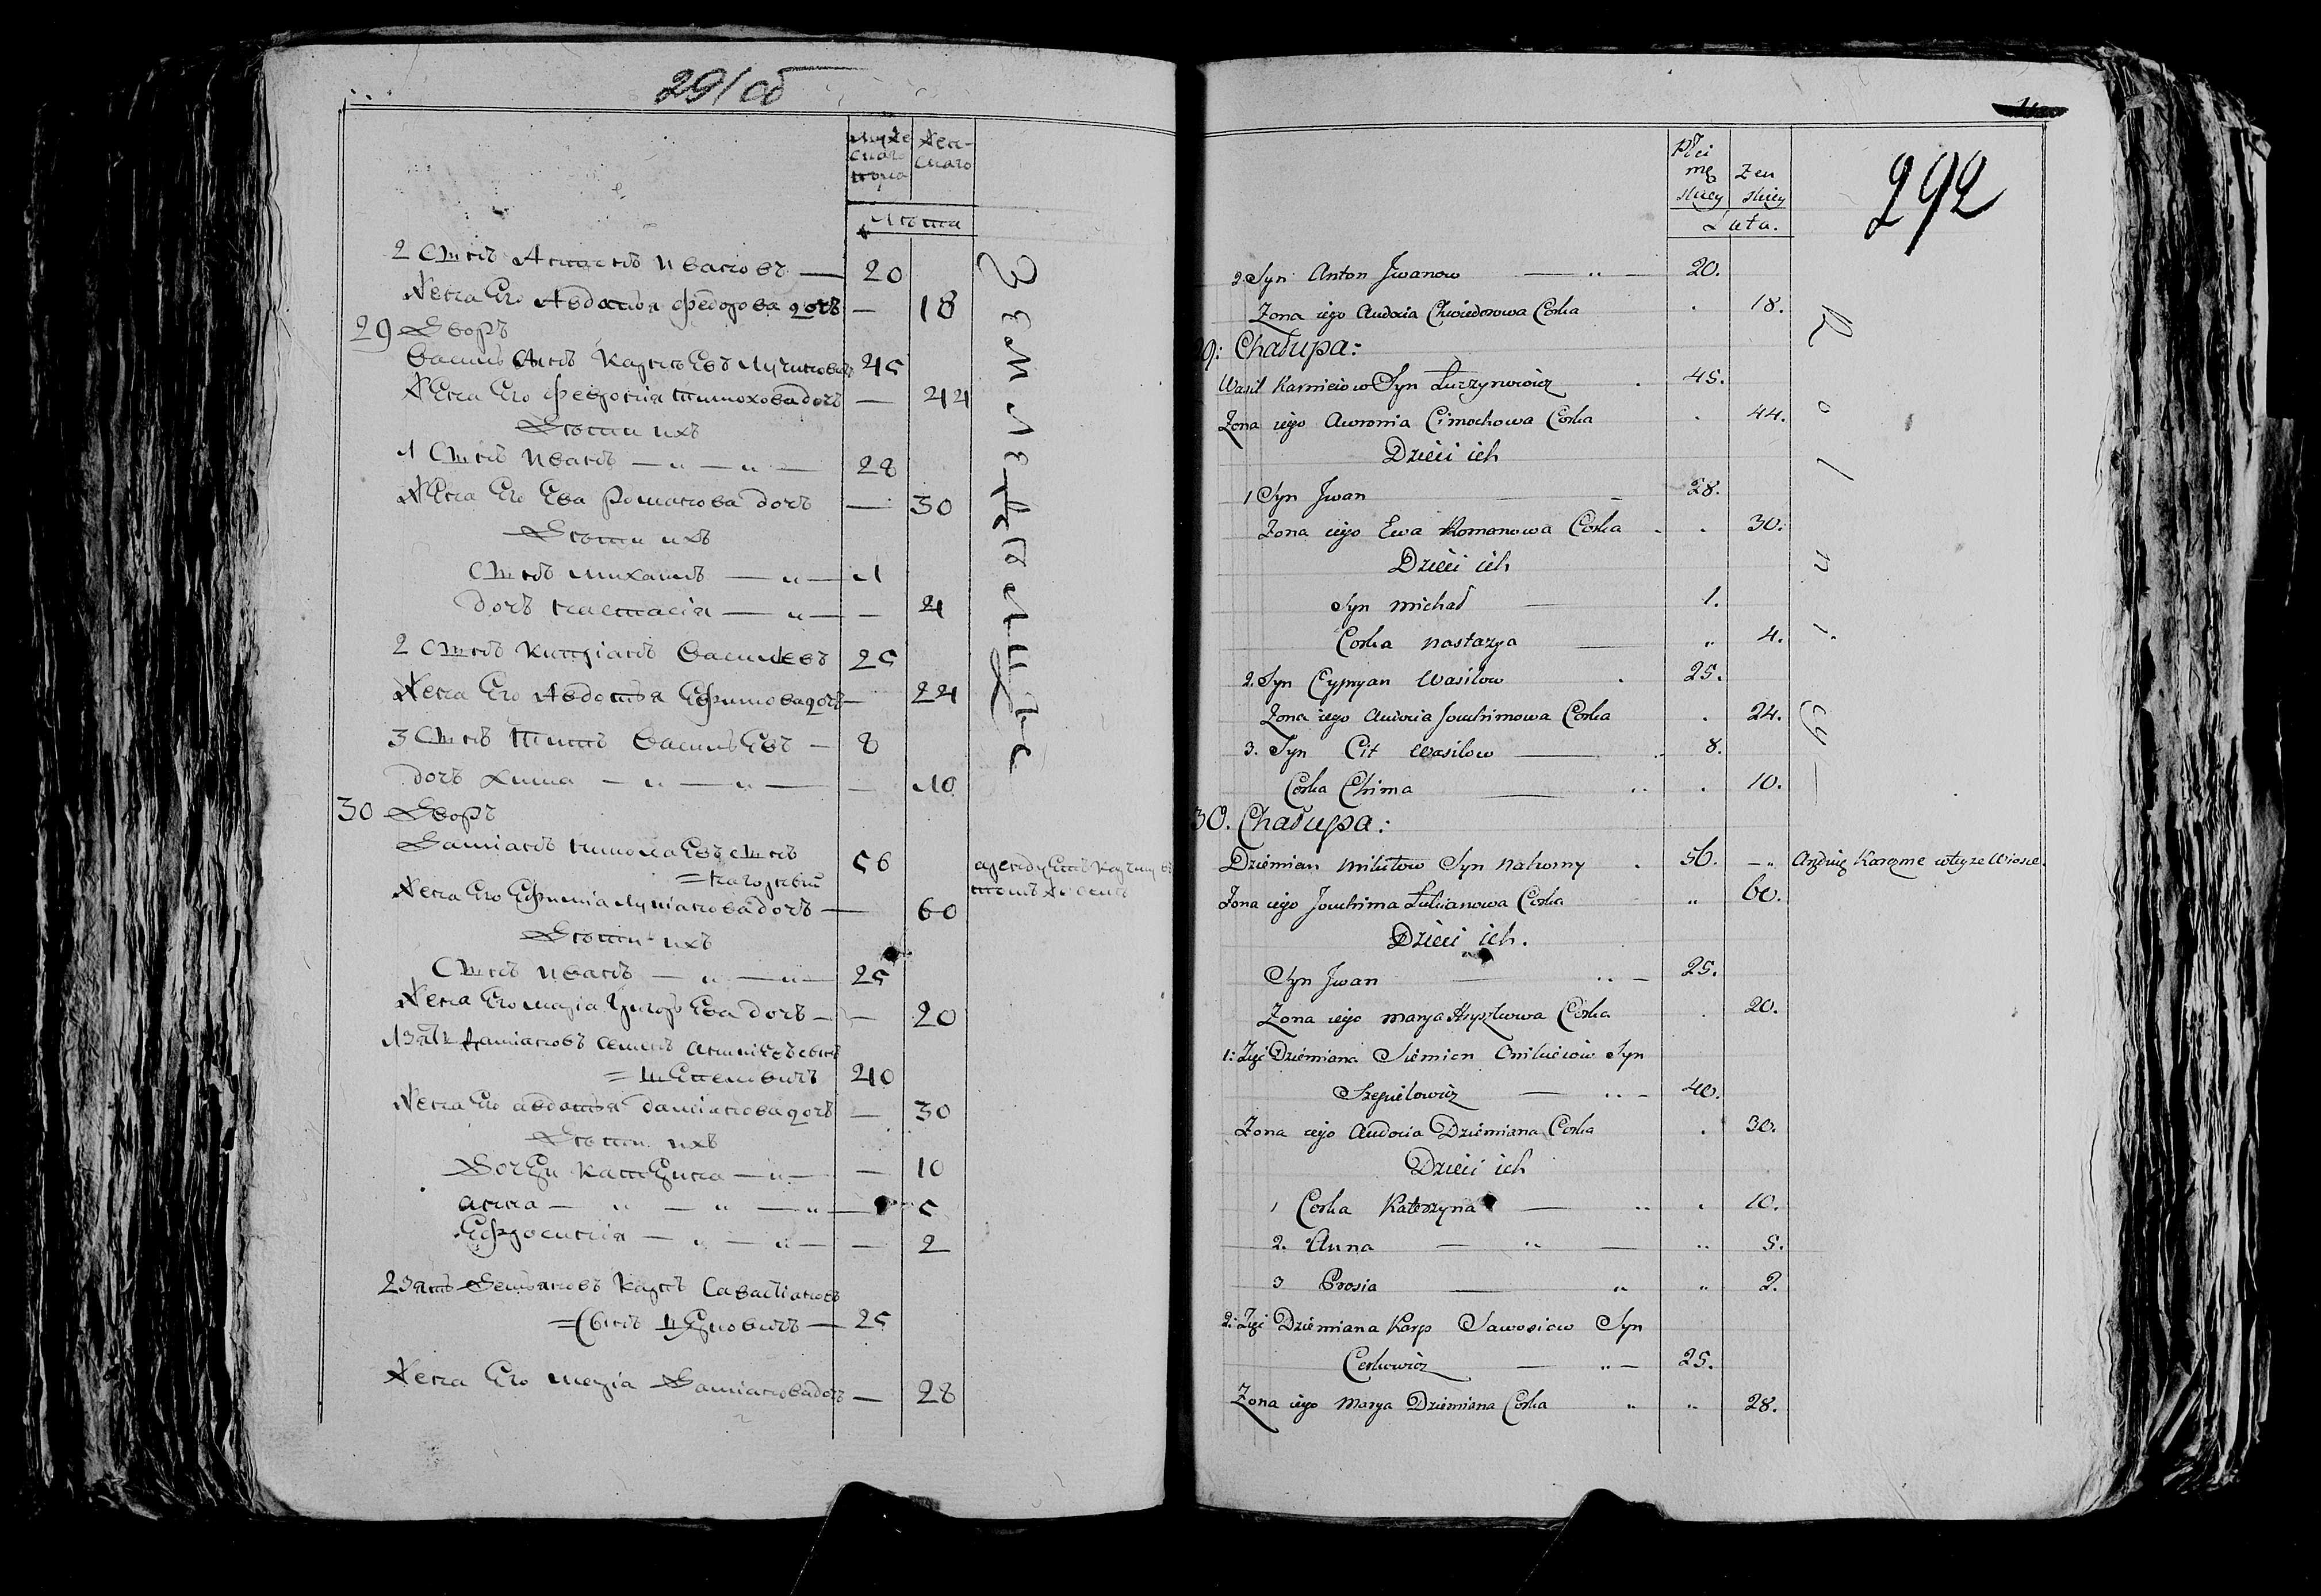 291 об
Муже
скаго
пола
Жен-
скаго
Лѣта
2 Сынъ Антонъ Ивановъ — 20
Жена Его Авдотья Федорова дочь — 18
29 Дворъ
Василь Сынъ Карнѣевъ Лучиновичь 45
Жена Его Феврония Тимохова дочь — 44
Дѣти ихъ
1 Сынъ Иванъ — „ — „ — 28
Жена Его Ева Романова дочь — 30
Дѣти ихъ
Сынъ Михаилъ — „ — 1
дочь Настасія — „ — — 4
2 Сынъ Кипріанъ Васильевъ 25
Жена Его Авдотья Ефимова дочь — 24
3 Сынъ Титъ Васильевъ — 8
дочь Хима — „ — „ — — 10
30 Дворъ
Даміанъ сынъ 56
Жена Его Ефимія Лукіанова дочь — 60
Дѣти ихъ
Сынъ Иванъ — „ — „ — 25
Жена Его Марія дочь — — 20
1 Зять Даміановъ Семенъ
40
Жена Его авдотья даміанова дочь — 30
Дѣти ихъ
Дочери Катерина — „ — — 10
анна — „ — „ — „ — 5
Ефросинія — „ — „ — — 2
2 Зять Демьяновъ Карпъ Савастіановъ
25
Жена Его Марія Даміанова дочь — 28
Земледѣльцы
арендуетъ карчму въ
292
Płci
mę
skiey
Żen
skiey
Lata.
2. Syn Anton Iwanow — „ — 20.
Żona iego Audocia Chwiedorowa Corka . 18.
29: Chałupa:
Wasil Karnieiow Syn Łuczynowicz . 45.
Żona iego Awronia Cimochowa Corka . 44.
Dzieci ich
1 Syn Iwan — 28.
Żona iego Ewa Romanowa Corka . . 30.
Dzieci ich
Syn Michał — 1.
Corka Nastazya — „ 4.
2. Syn Cypryan Wasilow . 25.
Żona iego Audocia Jouchimowa Corka . 24.
3. Syn Cit Wasilow — . 8.
Corka Chima — .. . 10.
30. Chałupa:
Dziemian Nikitow Syn Nahorny . 56. — „ Aręduię Karczme w teyże Wiosce.
Żona iego Jouchima Łukianowa Corka „ 60.
Dzieci ich.
Syn Iwan .. — 25.
Żona iego Marya Hryszkowa Corka . 20.
1: Zięć Dziemiana Siemien Onikieiow Syn
Szepielowicz — .. — 40.
Żona iego Audocia Dziemiana Corka . 30.
Dzieci ich
1 Corka Katerzyna — .. . 10.
2. Anna — .. — .. 5.
3 Prosia — „ „ 2.
2: Zięć Dziemiana Karp Sawosiow Syn
Cerkowicz — .. — 25.
Żona iego Marya Dziemiana Corka „ „ 28.
Rolnicy